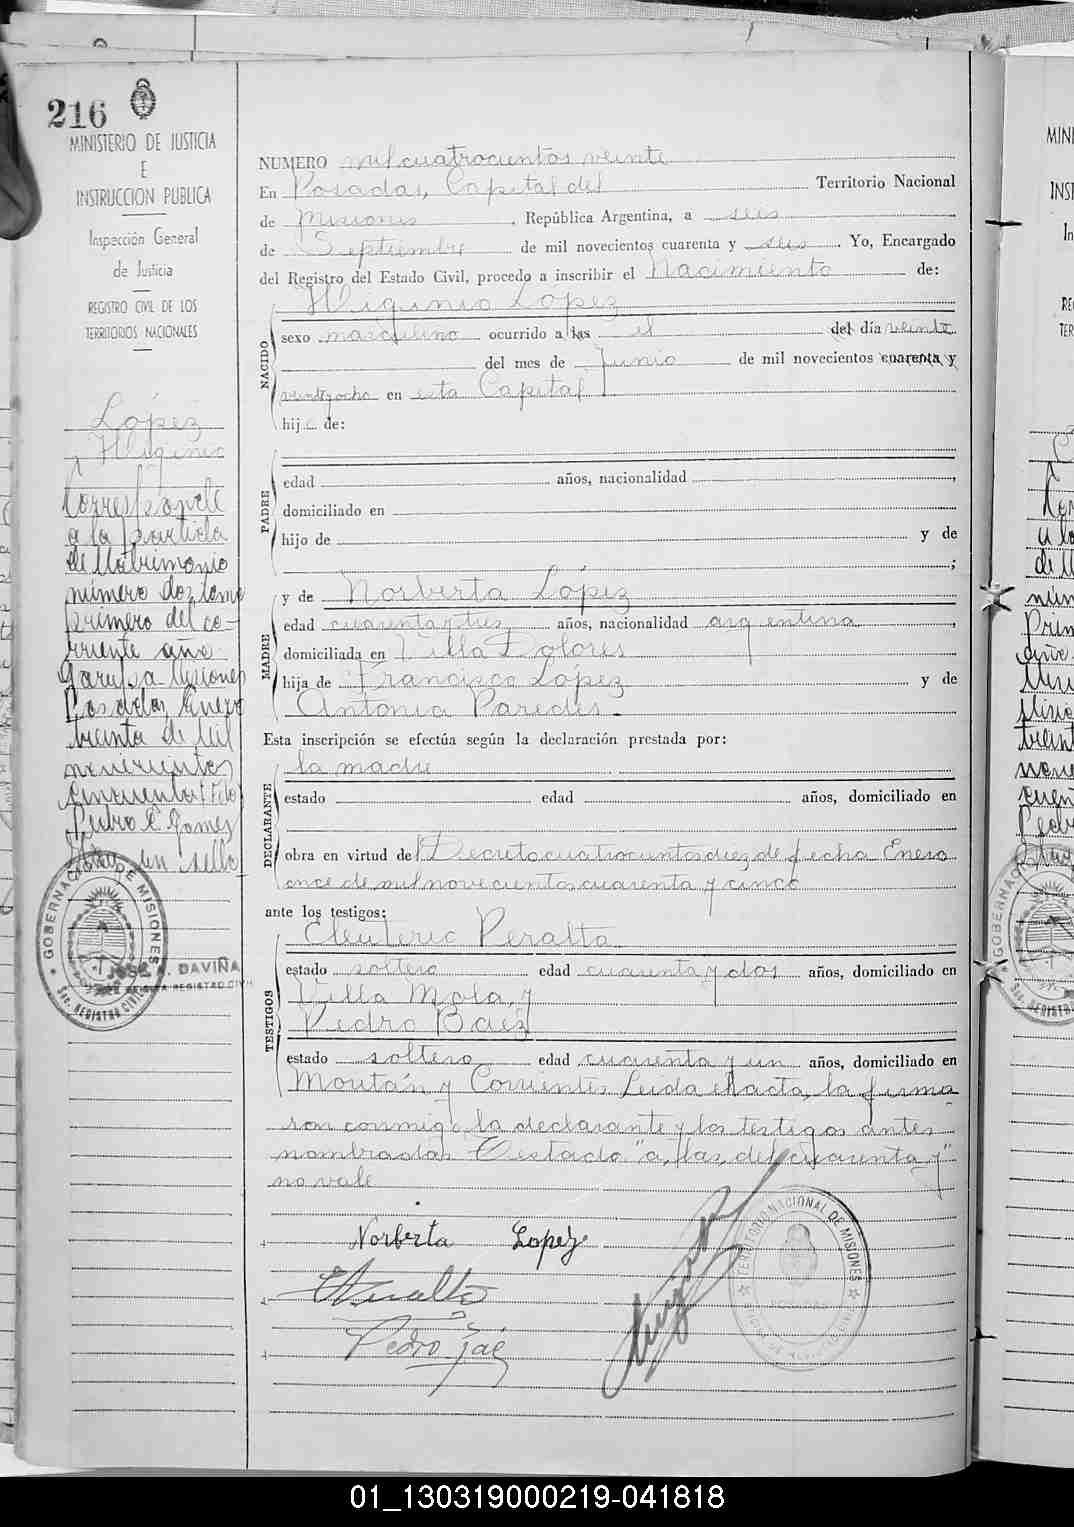 216
MINISTERIO DE JUSTICIA
E
INSTRUCCION PUBLICA
Inspección General
de Justicia
REGISTRO CIVIL DE LOS
TERRITORIOS NACIONALES
López
Higinio
Corresponde
a la partida
de Matrimonio
número dos tomo
primero del co-
rriente año
Garupa Misiones
Posadas, Enero
treinta de mil
novecientos
cincuenta
Pedro C. Gomez
un sello
GOBERNACION DE MISIONES
JOSE A. DAVIÑA
REGISTRO CIVIL
Sec. REGISTRO CIVIL
NUMERO mil cuatrocientos veinte
En Posadas, Capital del Territorio Nacional
de Misiones, República Argentina, a seis
de Septiembre de mil novecientos cuarenta y seis. Yo, Encargado
del Registro del Estado Civil, procedo a inscribir el Nacimiento de:
Higinio López
NACIDO
sexo masculino ocurrido a las el del día veinte
del mes de Junio de mil novecientos cuarenta y
veintiocho en esta Capital
hijo de:
PADRE
edad años, nacionalidad ,
domiciliado en
hijo de y de
;
MADRE
y de Norberta López
edad cuarenta y tres años, nacionalidad argentina,
domiciliada en Villa Dolores
hija de Francisco López y de
Antonia Paredes.
Esta inscripción se efectúa según la declaración prestada por:
la madre
DECLARANTE
estado edad años, domiciliado en
obra en virtud del Decreto cuatrocientos diez de fecha Enero
once de mil novecientos cuarenta y cinco
ante los testigos:
TESTIGOS
Eleuterio Peralta
estado soltero edad cuarenta y dos años, domiciliado en
Villa Mola, y
Pedro Baez
estado soltero edad cuarenta y un años, domiciliado en
Moután y Corrientes. Leida el acta, la firma
ron conmigo la declarante y los testigos antes
nombrados. Testado "a, las, del cuarenta y"
no vale
Norberta Lopez
EPeralta
Pedro
TERRITORIO NACIONAL DE MISIONES
POSADAS
01_130319000219-041818